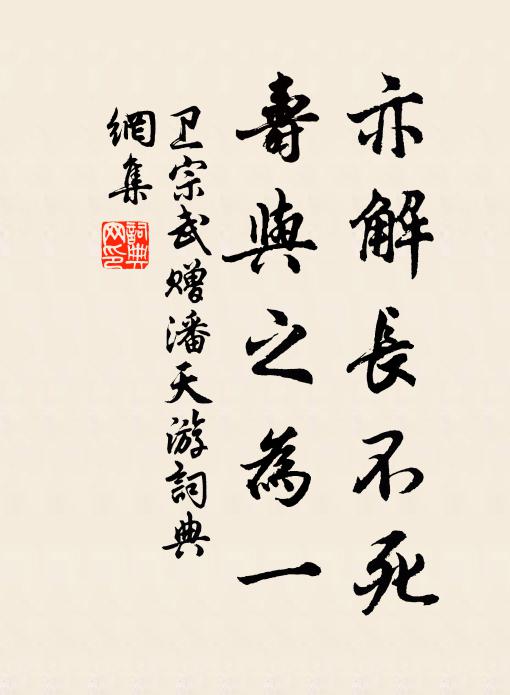 亦解長不死
壽與之為一
卫宗武赠潘天游詞典
網集
詞典
网印